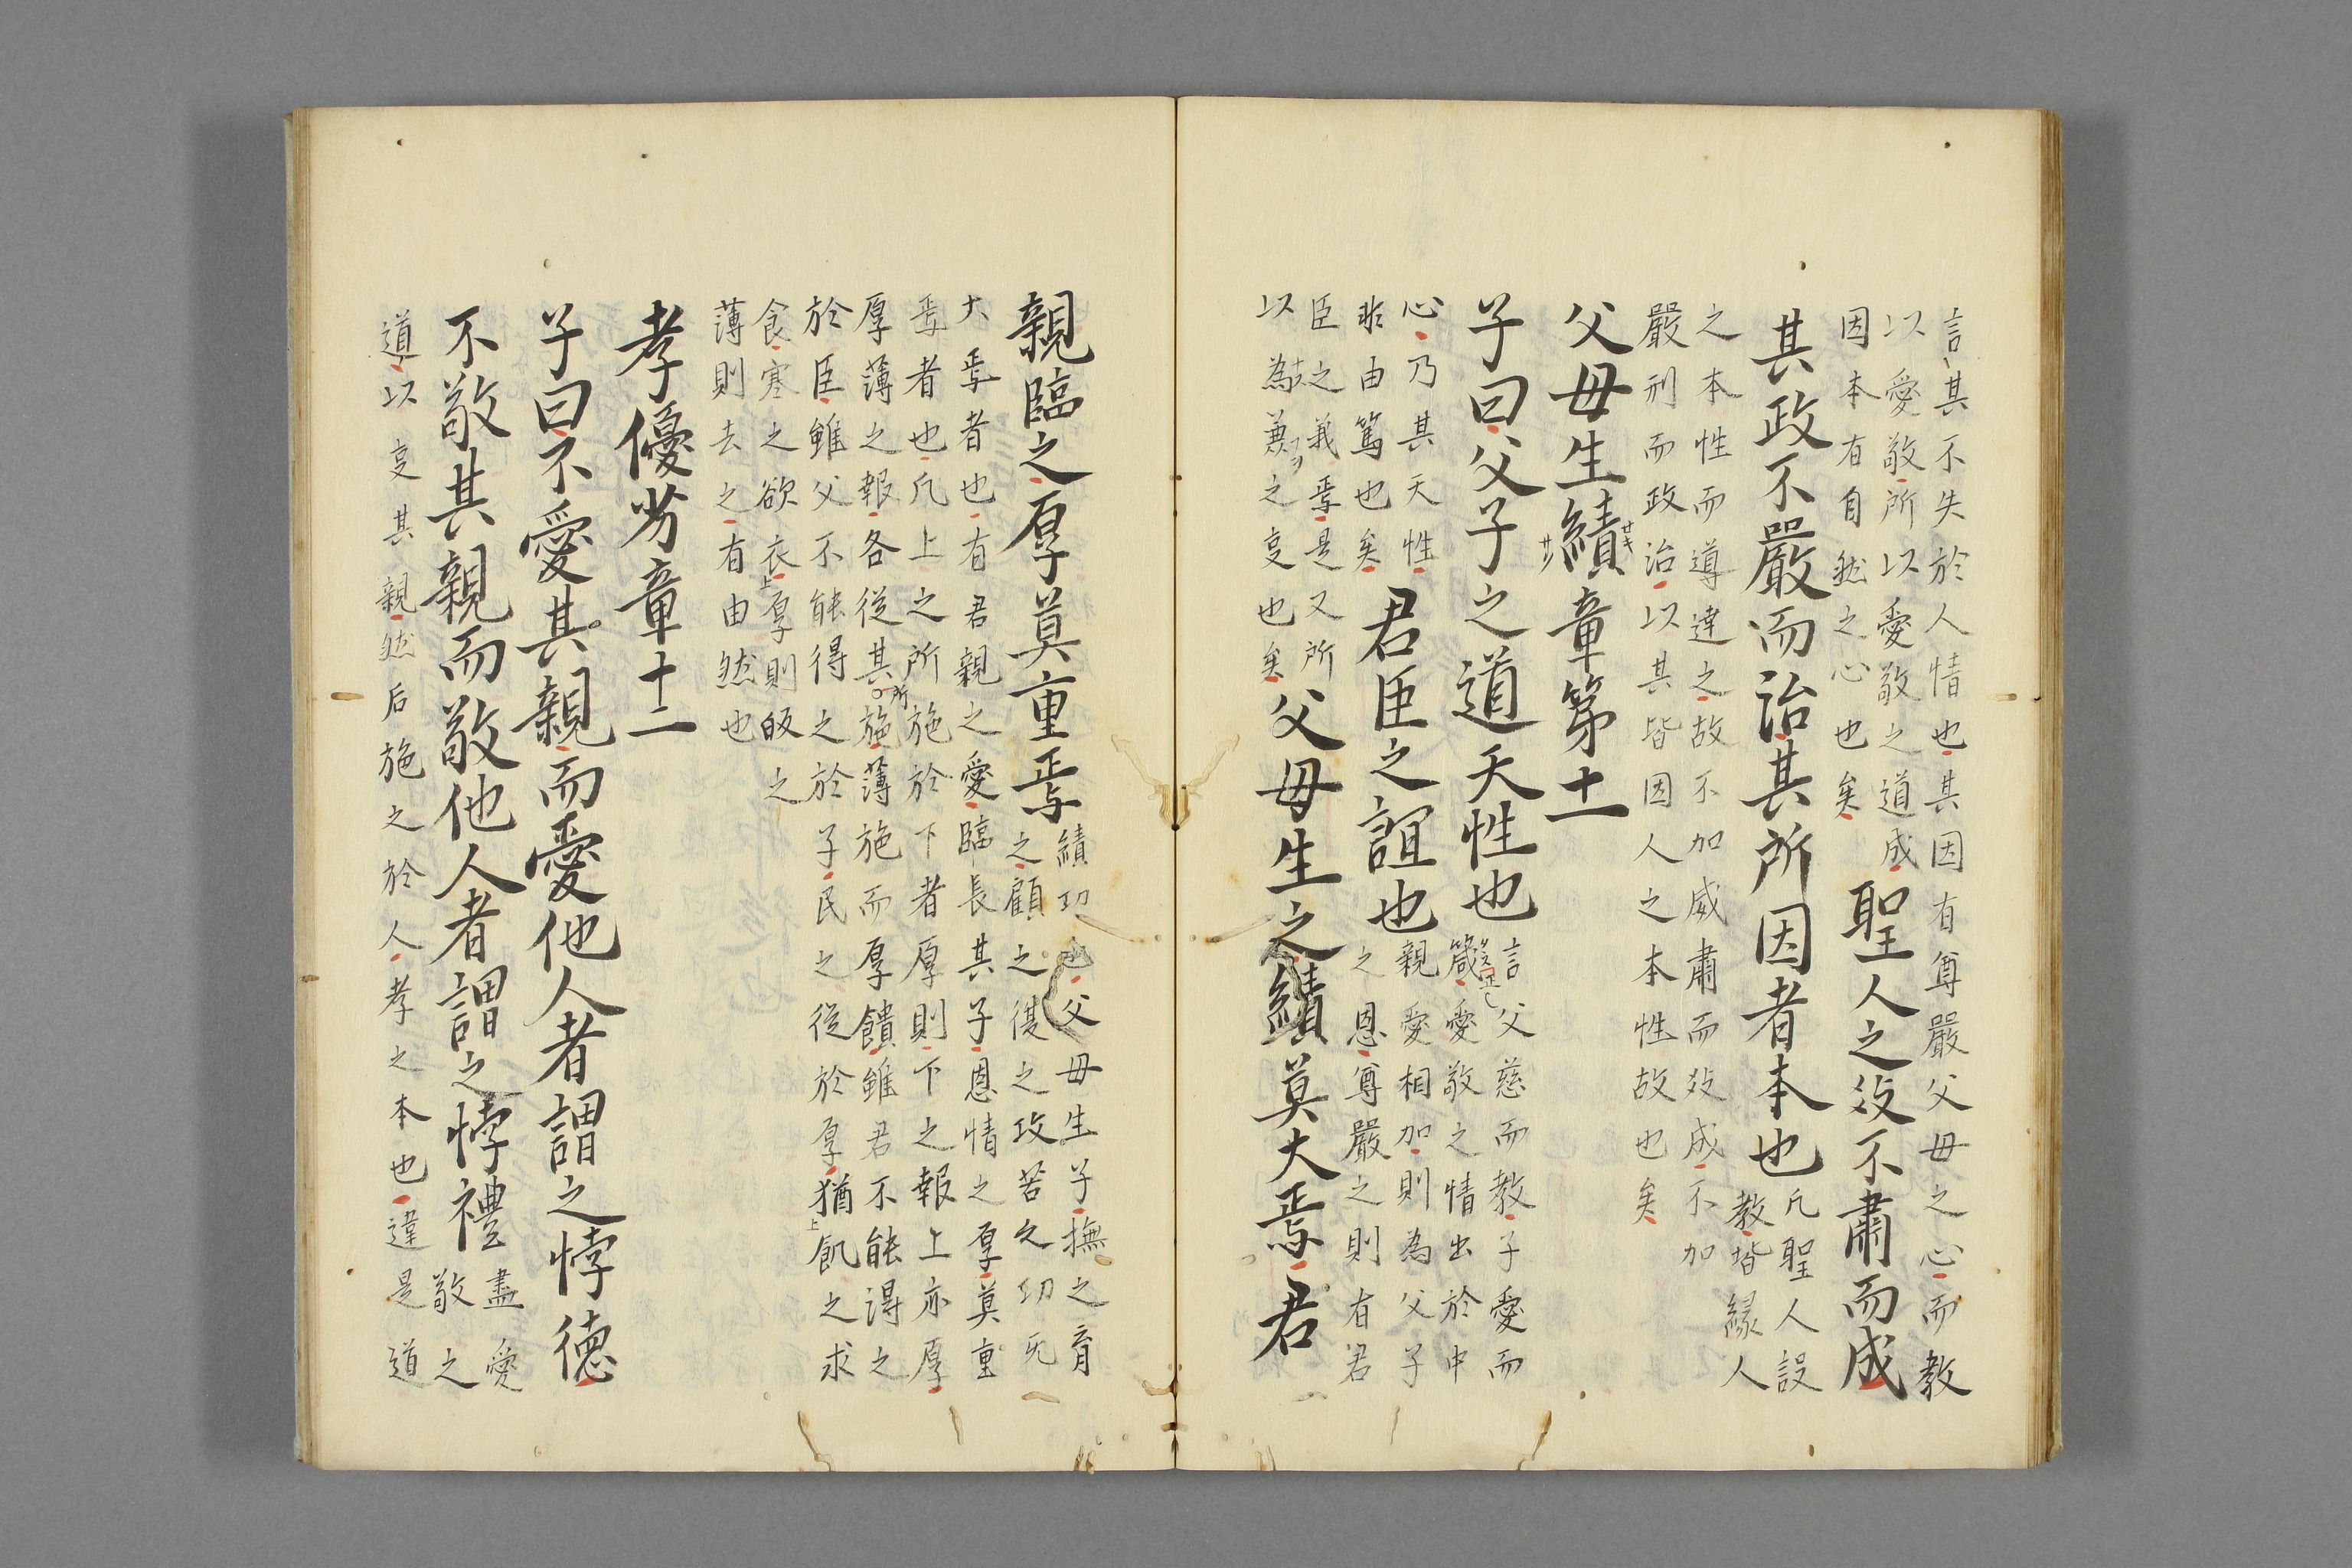 言其不失於人情也其因有尊嚴父母之心而教
以愛敬所以愛敬之道成
因本有自然之心也矣
聖人之敎不肅而成
其政不嚴而治其所因者本也
凡聖人設
教皆緣人
之本性而導達之故不加威肅而敎成不加
嚴刑而政治以其皆因人之本性故也矣
父母生績章第十一
子曰父子之道天性也
言父慈而教子愛而
箴愛敬之情出於中
心乃其天性
非由篤也矣
君臣之誼也
親愛相加則為父子
之恩尊嚴之則有君
臣之義焉是又所
以為兼之事也矣
父母生之績莫大焉君
親臨之厚莫重焉
績功也父母生子撫之育
之顧之復之攻苦之功无
大焉者也有君親之愛臨長其子恩情之厚莫重
焉者也凡上之所施於下者厚則下之報上亦厚
厚薄之報各從其所施薄施而厚饋雖君不能得之
於臣雖父不能得之於子民之從於厚猶飢之求
食寒之欲衣厚則皈之
薄則去之有由然也
孝優劣章十二
子曰不愛其親而愛他人者謂之悖德
不敬其親而敬他人者謂之悖禮
盡愛
敬之
道以事其親然后施之於人孝之本也違是道